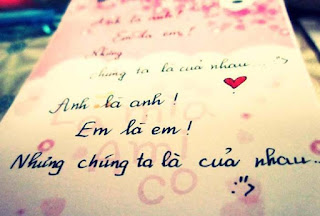 Anh là anh !
Em là em !
Nhưng
chúng ta là của nhau... :">
Anh là anh !
Em là em !
Nhưng chúng ta là của nhau...
:">